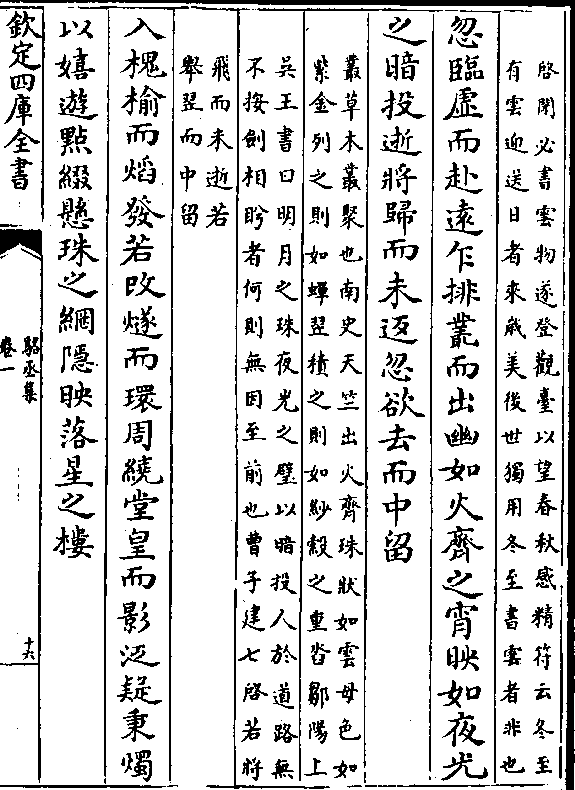 啓閉必書雲物遂登觀臺以望春秋感精符云冬至
有雲迎送日者來歳美後世獨用冬至書雲者非也
忽臨虛而赴遠乍排叢而出幽如火齊之宵映如夜光
之暗投逝將歸而未返忽欲去而中留
叢草木叢聚也南史天竺出火齊珠狀如雲母色如
紫金列之則如蟬翌積之則如紗縠之重沓鄒陽上
吴王書曰明月之珠夜光之璧以暗投人於道路無
不按劍相眄者何則無因至前也曹子建七啓若將
飛而未逝若
舉翌而中留
入槐榆而熖發若改燧而環周繞堂皇而影泛疑秉燭
以嬉遊點綴懸珠之網隱映落星之樓
欽定四庫全書
駱丞集
卷一
十六